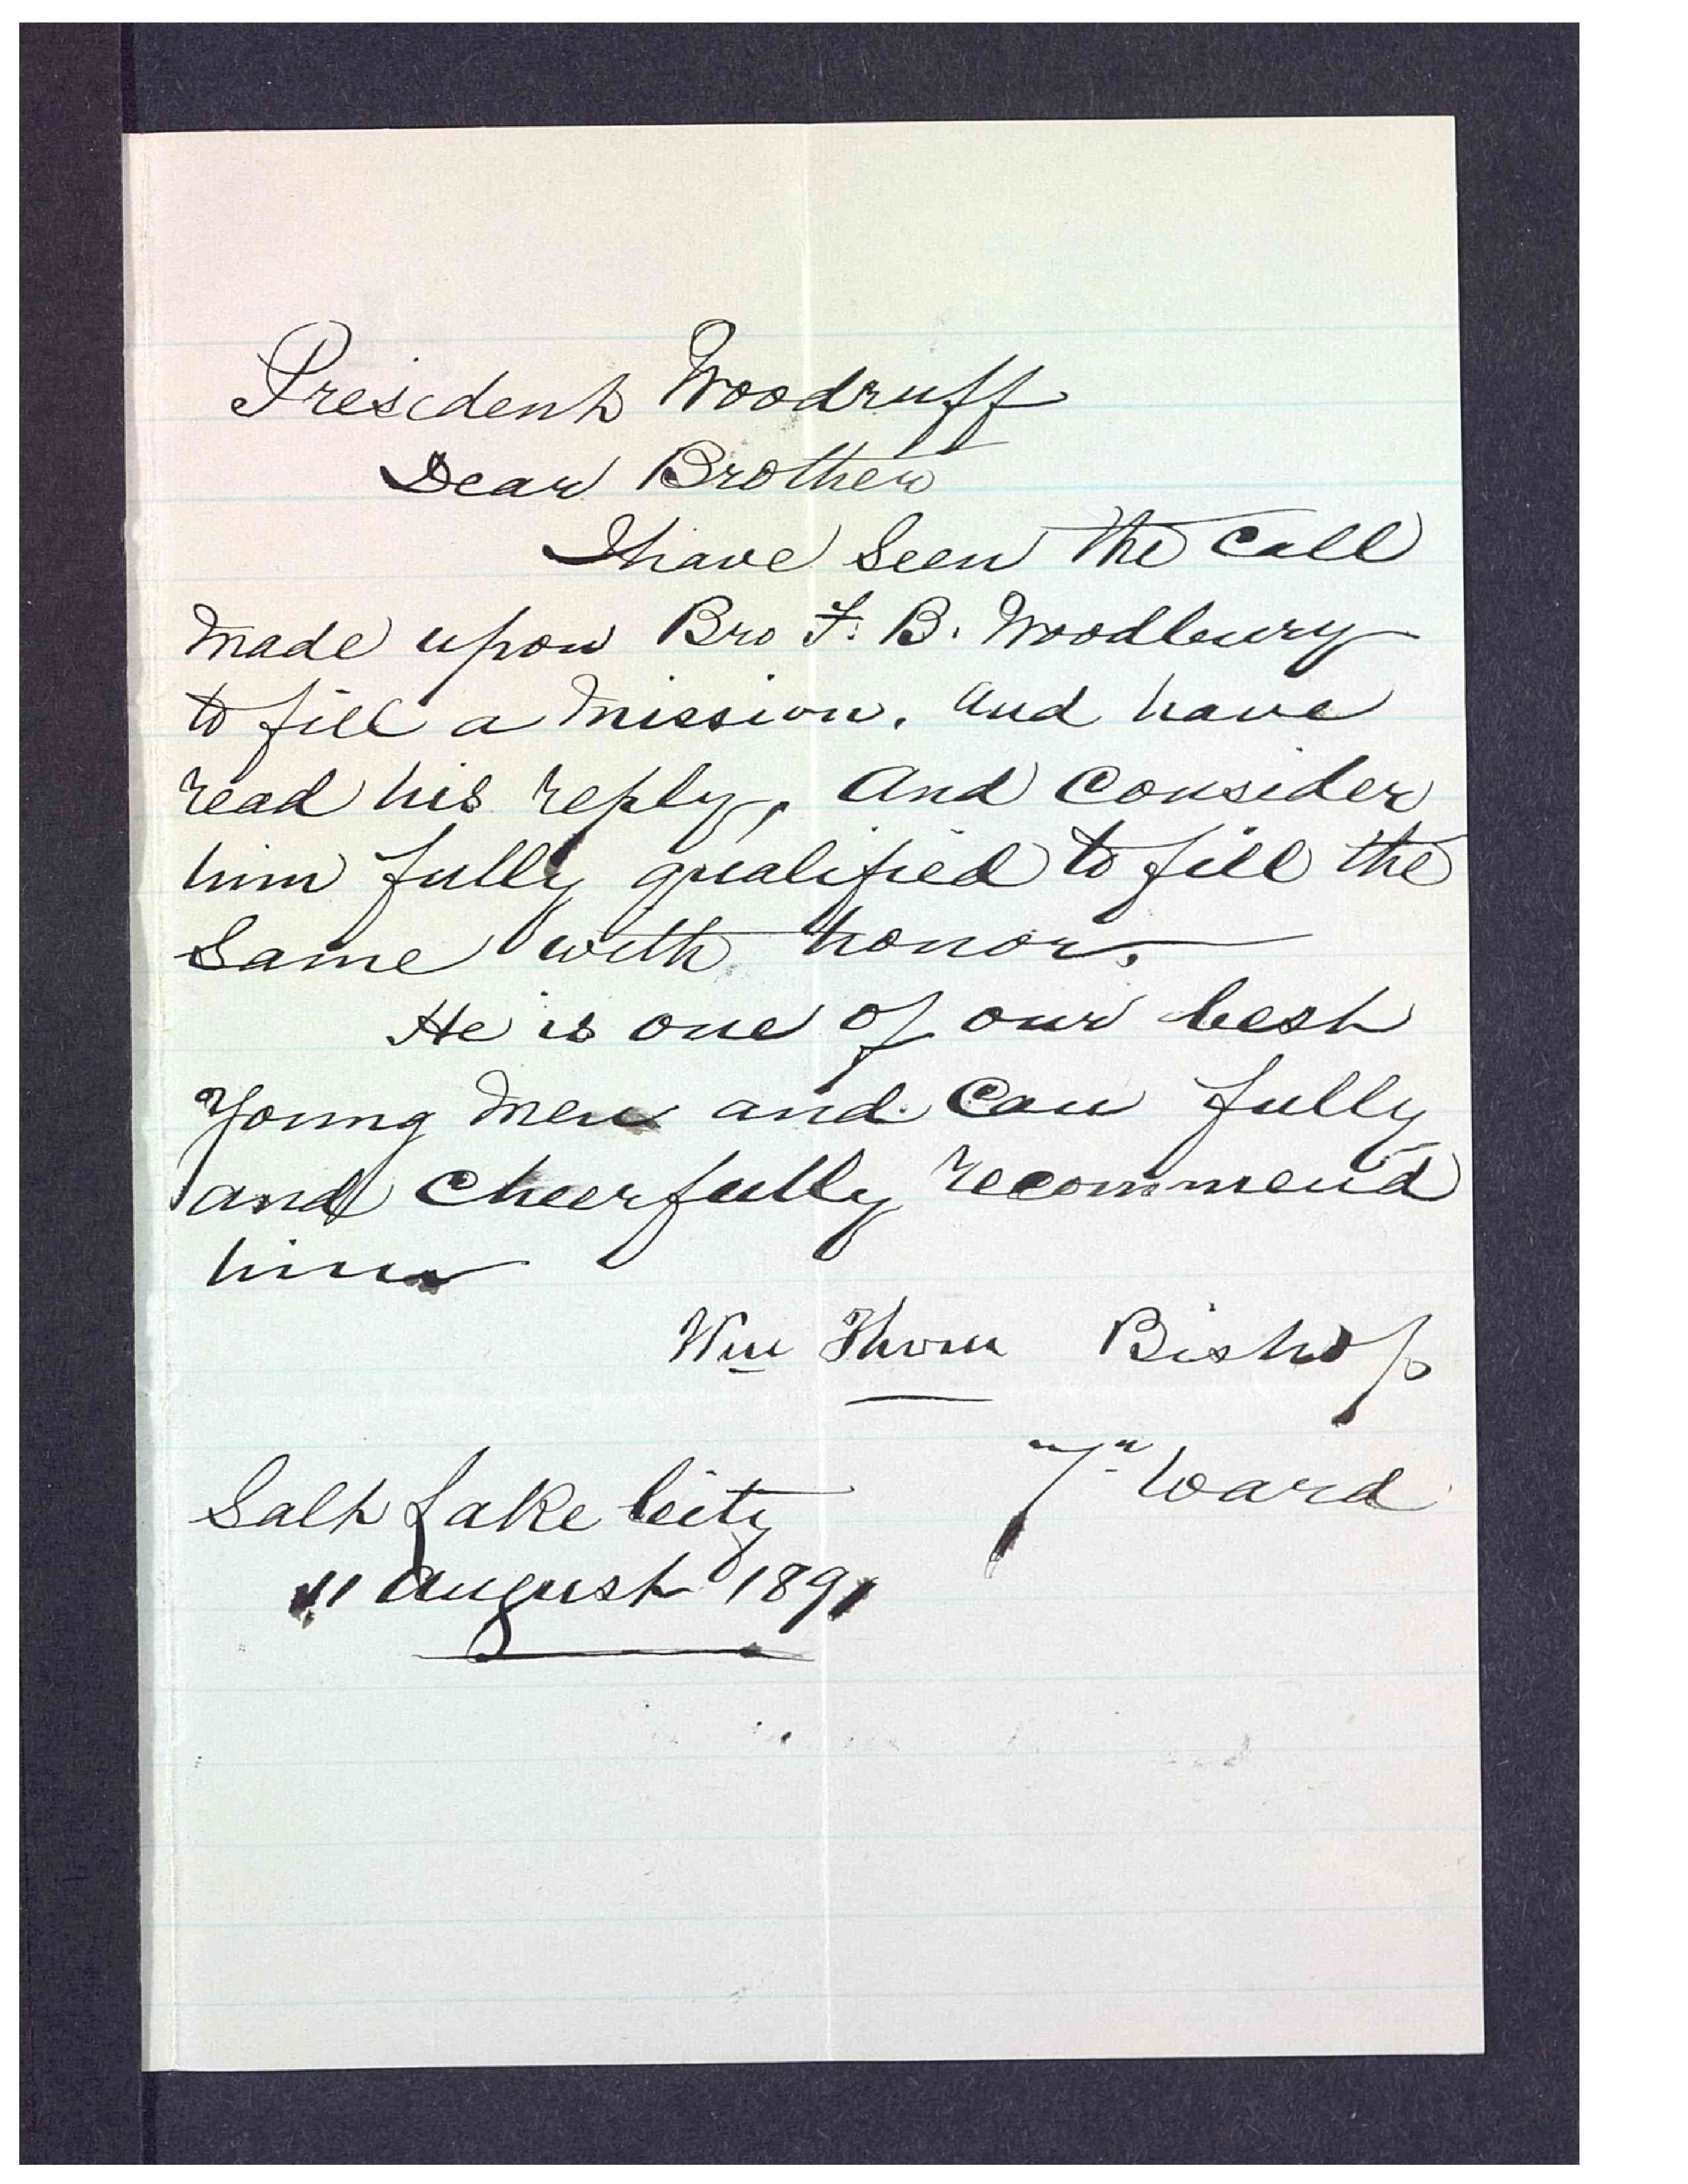 President Woodruff
Dear Brother
I have seen the call
made upon Bro F. B. Woodbury
to fill a mission. and have
read his reply, and consider
him fully qualified to fill the
same with honor.
He is one of our best
young men and can fully
and cheerfully recommend
him
Wm Thorn Bishop
7th Ward
Salt Lake City
11 August 1891